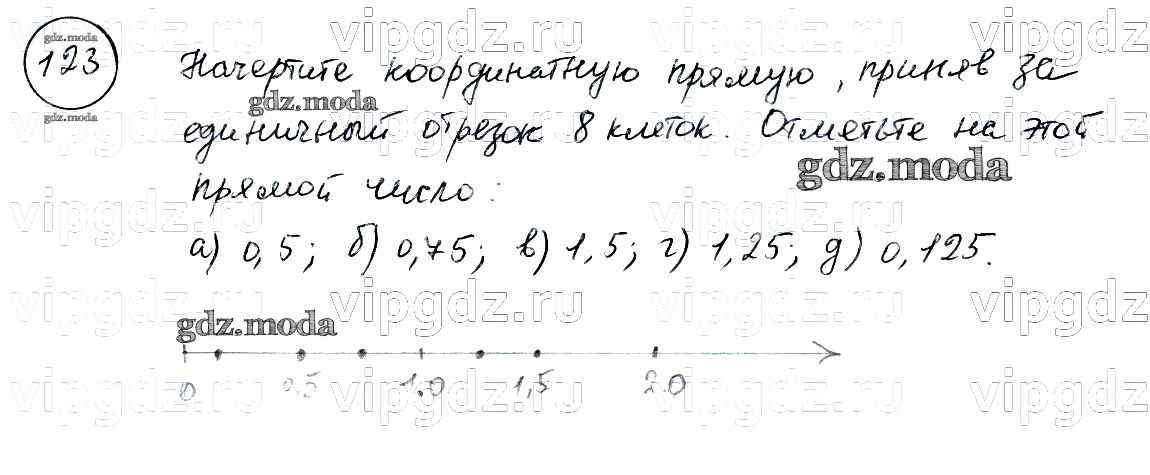 vipgdz.ru vipgdz.ru vipgdz.ru vipgdz.ru
gdz.moda
123
gdz.moda
Начертите координатную прямую, приняв за
gdz.moda
единичный отрезок 8 клеток. Отметьте на этой
gdz.moda
прямой число:
vipgdz.ru vipgdz.ru vipgdz.ru vipgdz.ru
а) 0,5; б) 0,75; в) 1,5; г) 1,25; д) 0,125.
vipgdz.ru vipgdz.ru vipgdz.ru vipgdz.ru
gdz.moda
0 0,5 1.0 1,5 2.0
vipgdz.ru vipgdz.ru vipgdz.ru vipgdz.ru